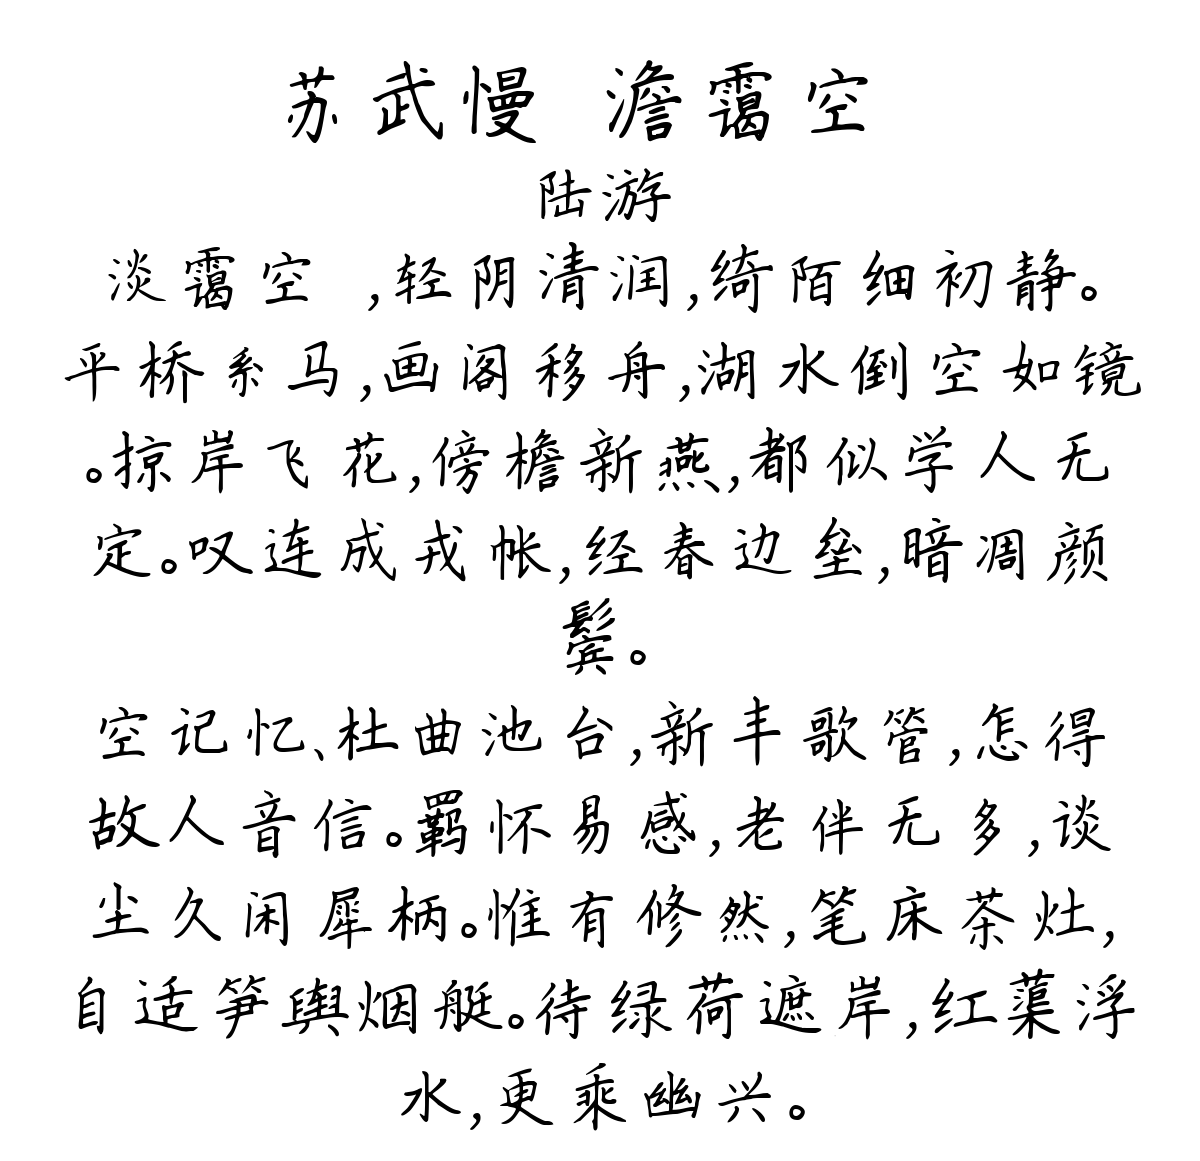 苏武慢 澹霭空
陆游
淡霭空 ,轻阴清润,绮陌细初静。
平桥系马,画阁移舟,湖水倒空如镜
。掠岸飞花,傍檐新燕,都似学人无
定。叹连成戎帐,经春边垒,暗凋颜
鬓。
空记忆、杜曲池台,新丰歌管,怎得
故人音信。羁怀易感,老伴无多,谈
尘久闲犀柄。惟有修然,笔床茶灶,
自适笋舆烟艇。待绿荷遮岸,红蕖浮
水,更乘幽兴。